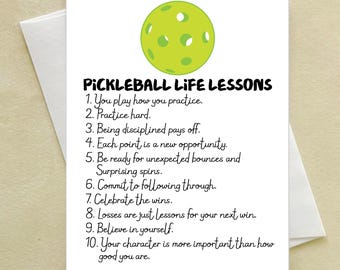 PiCKLEBALL LiFE LESSONS
1. You play how you practice.
2. Practice hard.
3. Being disciplined pays off.
4. Each point is a new opportunity.
5. Be ready for unexpected bounces and
Surprising spins.
6. Commit to following through.
7. Celebrate the wins.
8. Losses are just lessons for your next win.
9. Believe in yourself.
10. Your character is more important than how
good you are.